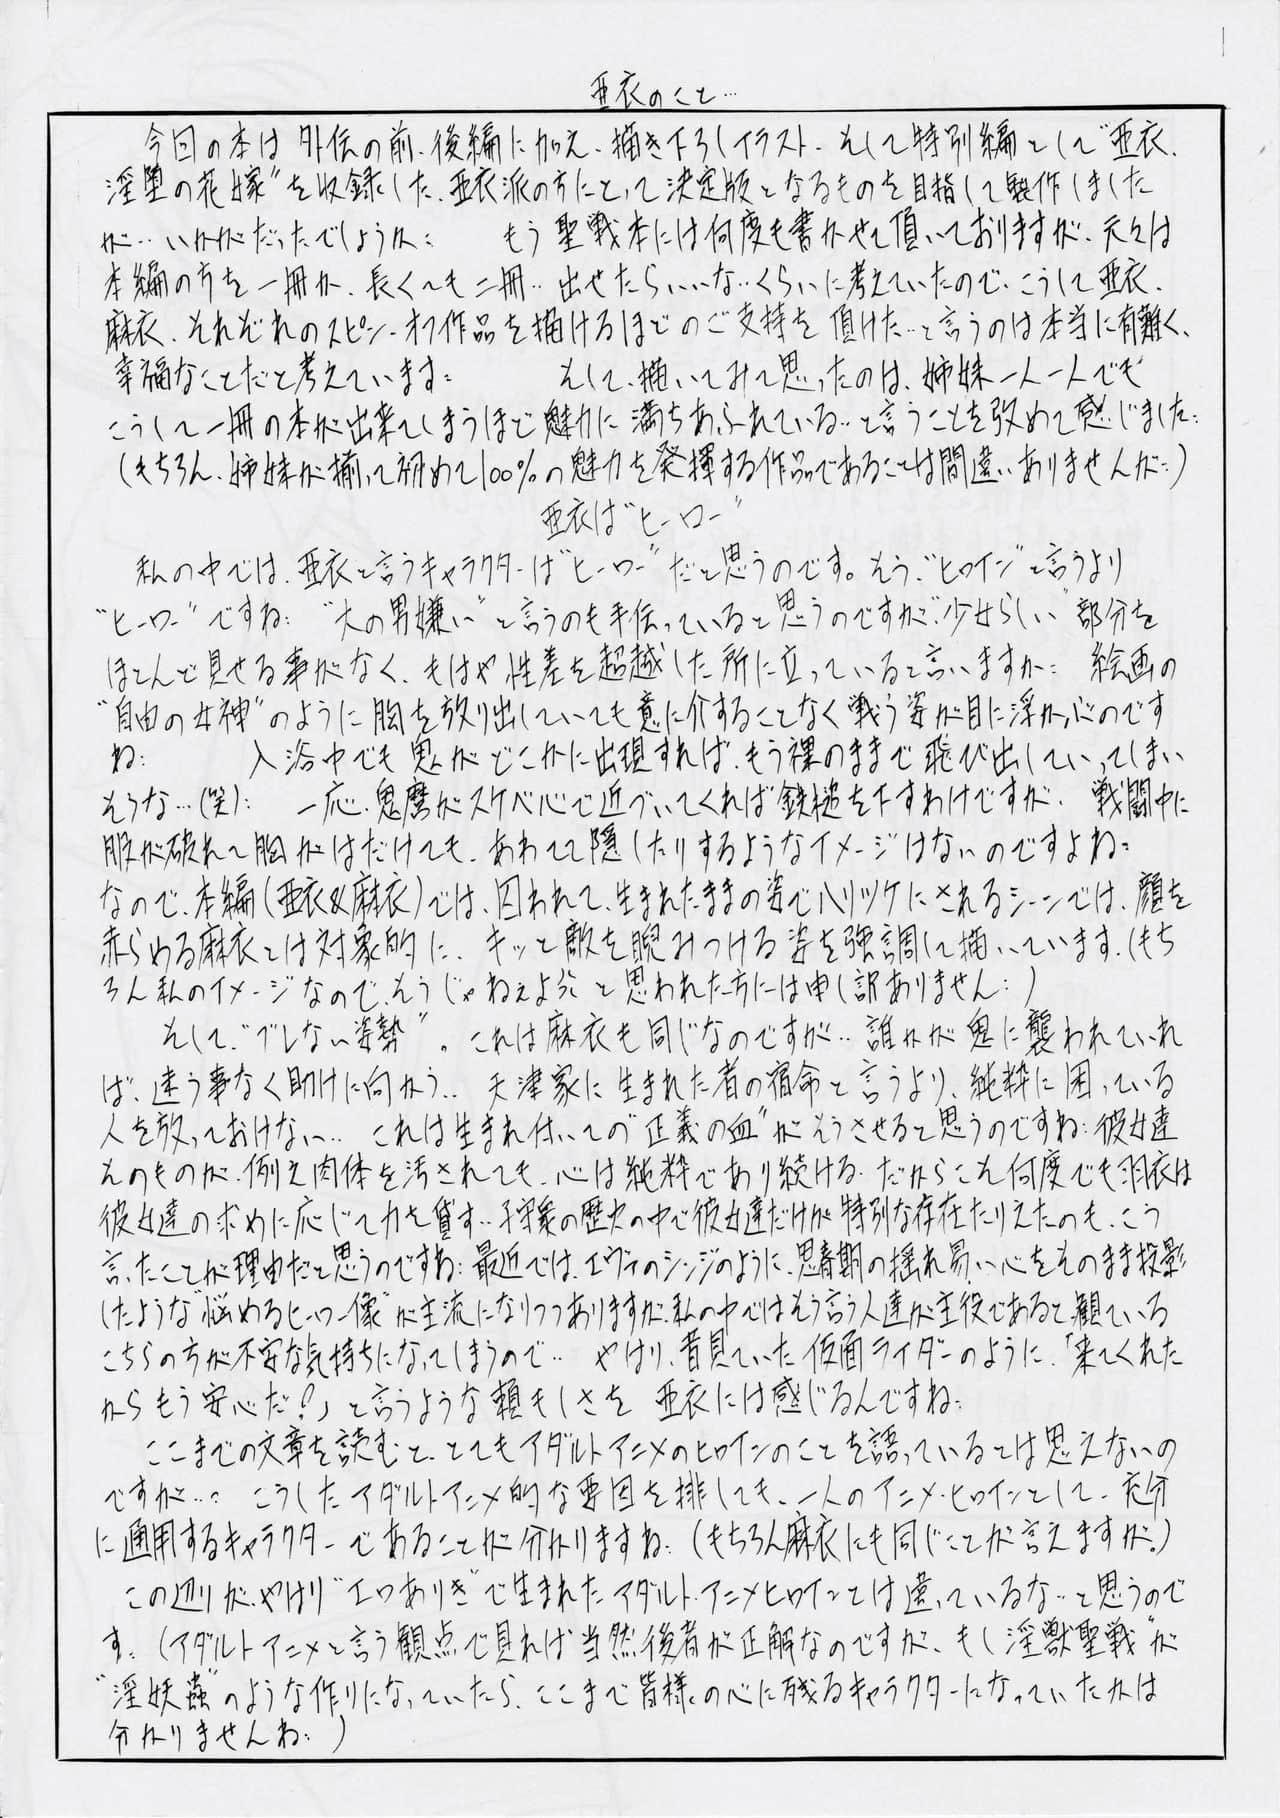 亜衣のこと…
今回の本は 外伝の前、後編に加え、描き下ろしイラスト、そして特別編として"亜衣、
淫堕の花嫁"を収録した、亜衣派の方にとって決定版となるものを目指して製作しました
が‥いかがだったでしょうか: もう聖戦本には何度も書かせて頂いておりますが、元々は
本編の方を一冊か、長くても二冊‥出せたらいいな‥くらいに考えていたので、こうして亜衣、
麻衣、それぞれのスピン・オフ作品を描けるほどのご支持を頂けた‥と言うのは本当に有難く、
幸福なことだと考えています: そして、描いてみて思ったのは、姉妹一人一人でも
こうして一冊の本が出来てしまうほど魅力に満ちあふれている‥と言うことを改めて感じました:
(もちろん、姉妹が揃って初めて100%の魅力を発揮する作品であることは間違いありませんが:)
亜衣は"ヒーロー"
私の中では、亜衣と言うキャラクターは"ヒーロー"だと思うのです。そう、"ヒロイン"と言うより
"ヒーロー"ですね: "大の男嫌い"と言うのも手伝っていると思うのですが、"少女らしい"部分を
ほとんど見せる事がなく、もはや性差を超越した所に立っていると言いますか: 絵画の
"自由の女神"のように胸を放り出していても意に介することなく戦う姿が目に浮かぶのです
ね: 入浴中でも鬼がどこかに出現すれば、もう裸のままで飛び出していってしまい
そうな…(笑): 一応、鬼麿がスケベ心で近づいてくれば鉄槌を下すわけですが、戦闘中に
服が破れて胸がはだけても、あわてて隠したりするようなイメージはないのですよね:
なので、本編(亜衣&麻衣)では、囚われて、生まれたままの姿でハリツケにされるシーンでは、顔を
赤らめる麻衣とは対象的に、キッと敵を睨みつける姿を強調して描いています、(もち
ろん私のイメージなので、そうじゃねぇよ‥と思われた方には申し訳ありません:)
そして、"ブレない姿勢"。これは麻衣も同じなのですが‥誰かが鬼に襲われていれ
ば、迷う事なく助けに向かう‥ 天津家に生まれた者の宿命と言うより、純粋に困っている
人を放っておけない‥ これは生まれ付いての"正義の血"がそうさせると思うのですね:彼女達
そのものが、例え肉体を汚されても、心は純粋であり続ける、だからこそ何度でも羽衣は
彼女達の求めに応じて力を貸す‥子守衆の歴史の中で彼女達だけが特別な存在たりえたのも、こう
言ったことが理由だと思うのですね:最近では、エヴァのシンジのように、思春期の揺れ易い心をそのまま投影
したような"悩めるヒーロー像"が主流になりつつありますが、私の中ではそう言う人達が主役であると、観ている
こちらの方が不安な気持ちになってしまうので‥ やはり、昔見ていた仮面ライダーのように、「来てくれた
からもう安心だ!」と言うような頼もしさを 亜衣には感じるんですね:
ここまでの文章を読むと、とてもアダルトアニメのヒロインのことを語っているとは思えないの
ですが‥: こうしたアダルトアニメ的な要因を排しても、一人のアニメ・ヒロインとして、充分
に通用するキャラクターであることが分かりますね:(もちろん麻衣にも同じことが言えますが:)
この辺りが、やはり"エロありき"で生まれたアダルト・アニメヒロインとは違っているな‥と思うので
す:(アダルトアニメと言う観点で見れば当然後者が正解なのですが、もし"淫獣聖戦"が
"淫妖蟲"のような作りになっていたら、ここまで皆様の心に残るキャラクターになっていたかは
分かりませんね:)